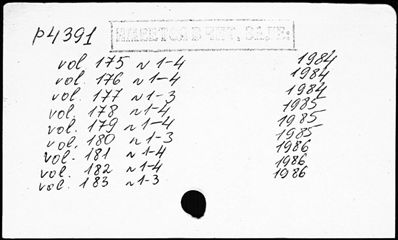 P4391
ИМЕЕТСЯ В ЧИТ. ЗАЛЕ:
vol. 175 N 1-4 1984
vol. 176 N 1-4 1984
vol. 177 N 1-3 1984
vol. 178 N 1-4, 1985
vol. 179 N 1-4 1985
vol. 180 N 1-3 1985
vol. 181 N 1-4 1986
vol. 182 N 1-4 1986,
vol. 183 N 1-3 1986